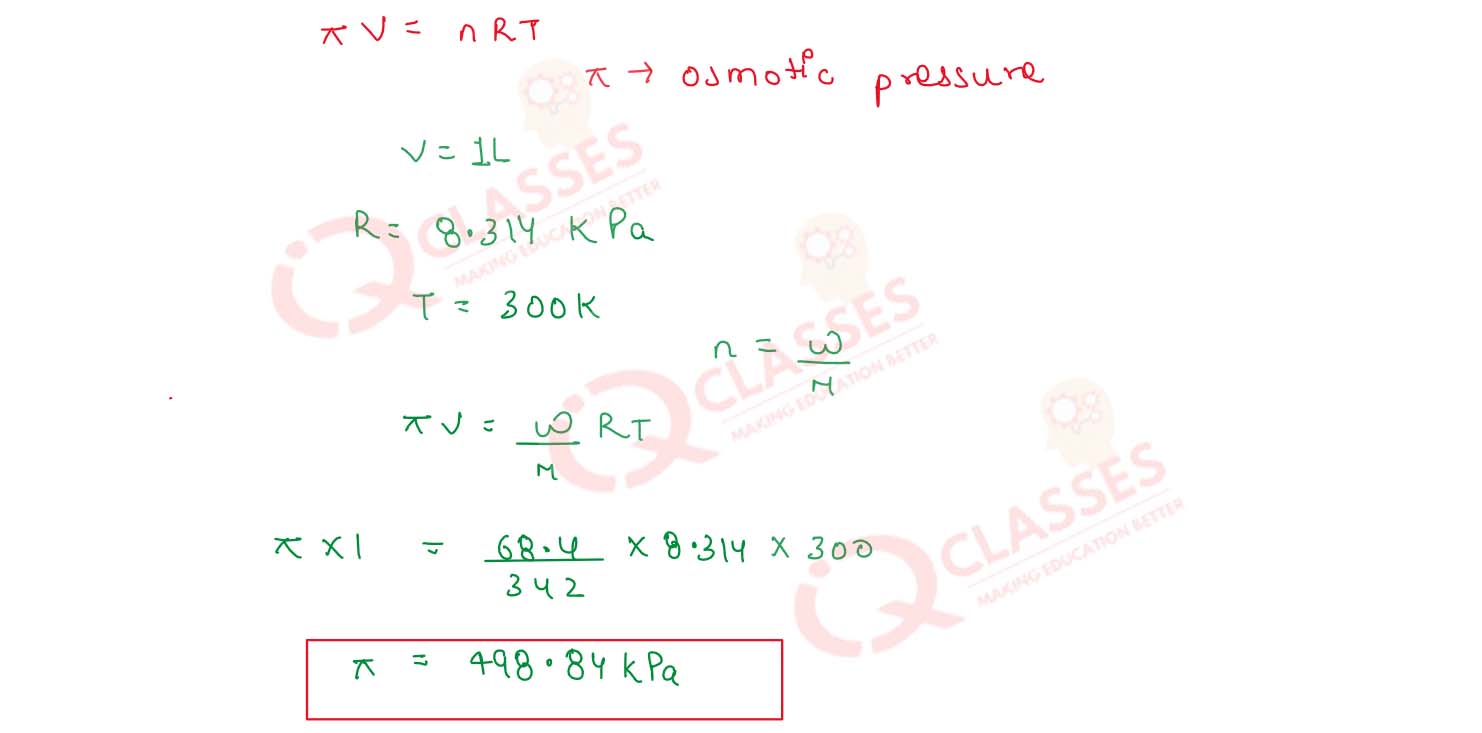 π V = n R T
π → osmotic pressure
V = 1L
R = 8.314 K Pa
T = 300K
n = w/M
π V = w/M R T
π × 1 = 68.4/342 × 8.314 × 300
π = 498.84 kPa
IQ CLASSES
MAKING EDUCATION BETTER
IQ CLASSES
MAKING EDUCATION BETTER
IQ CLASSES
MAKING EDUCATION BETTER